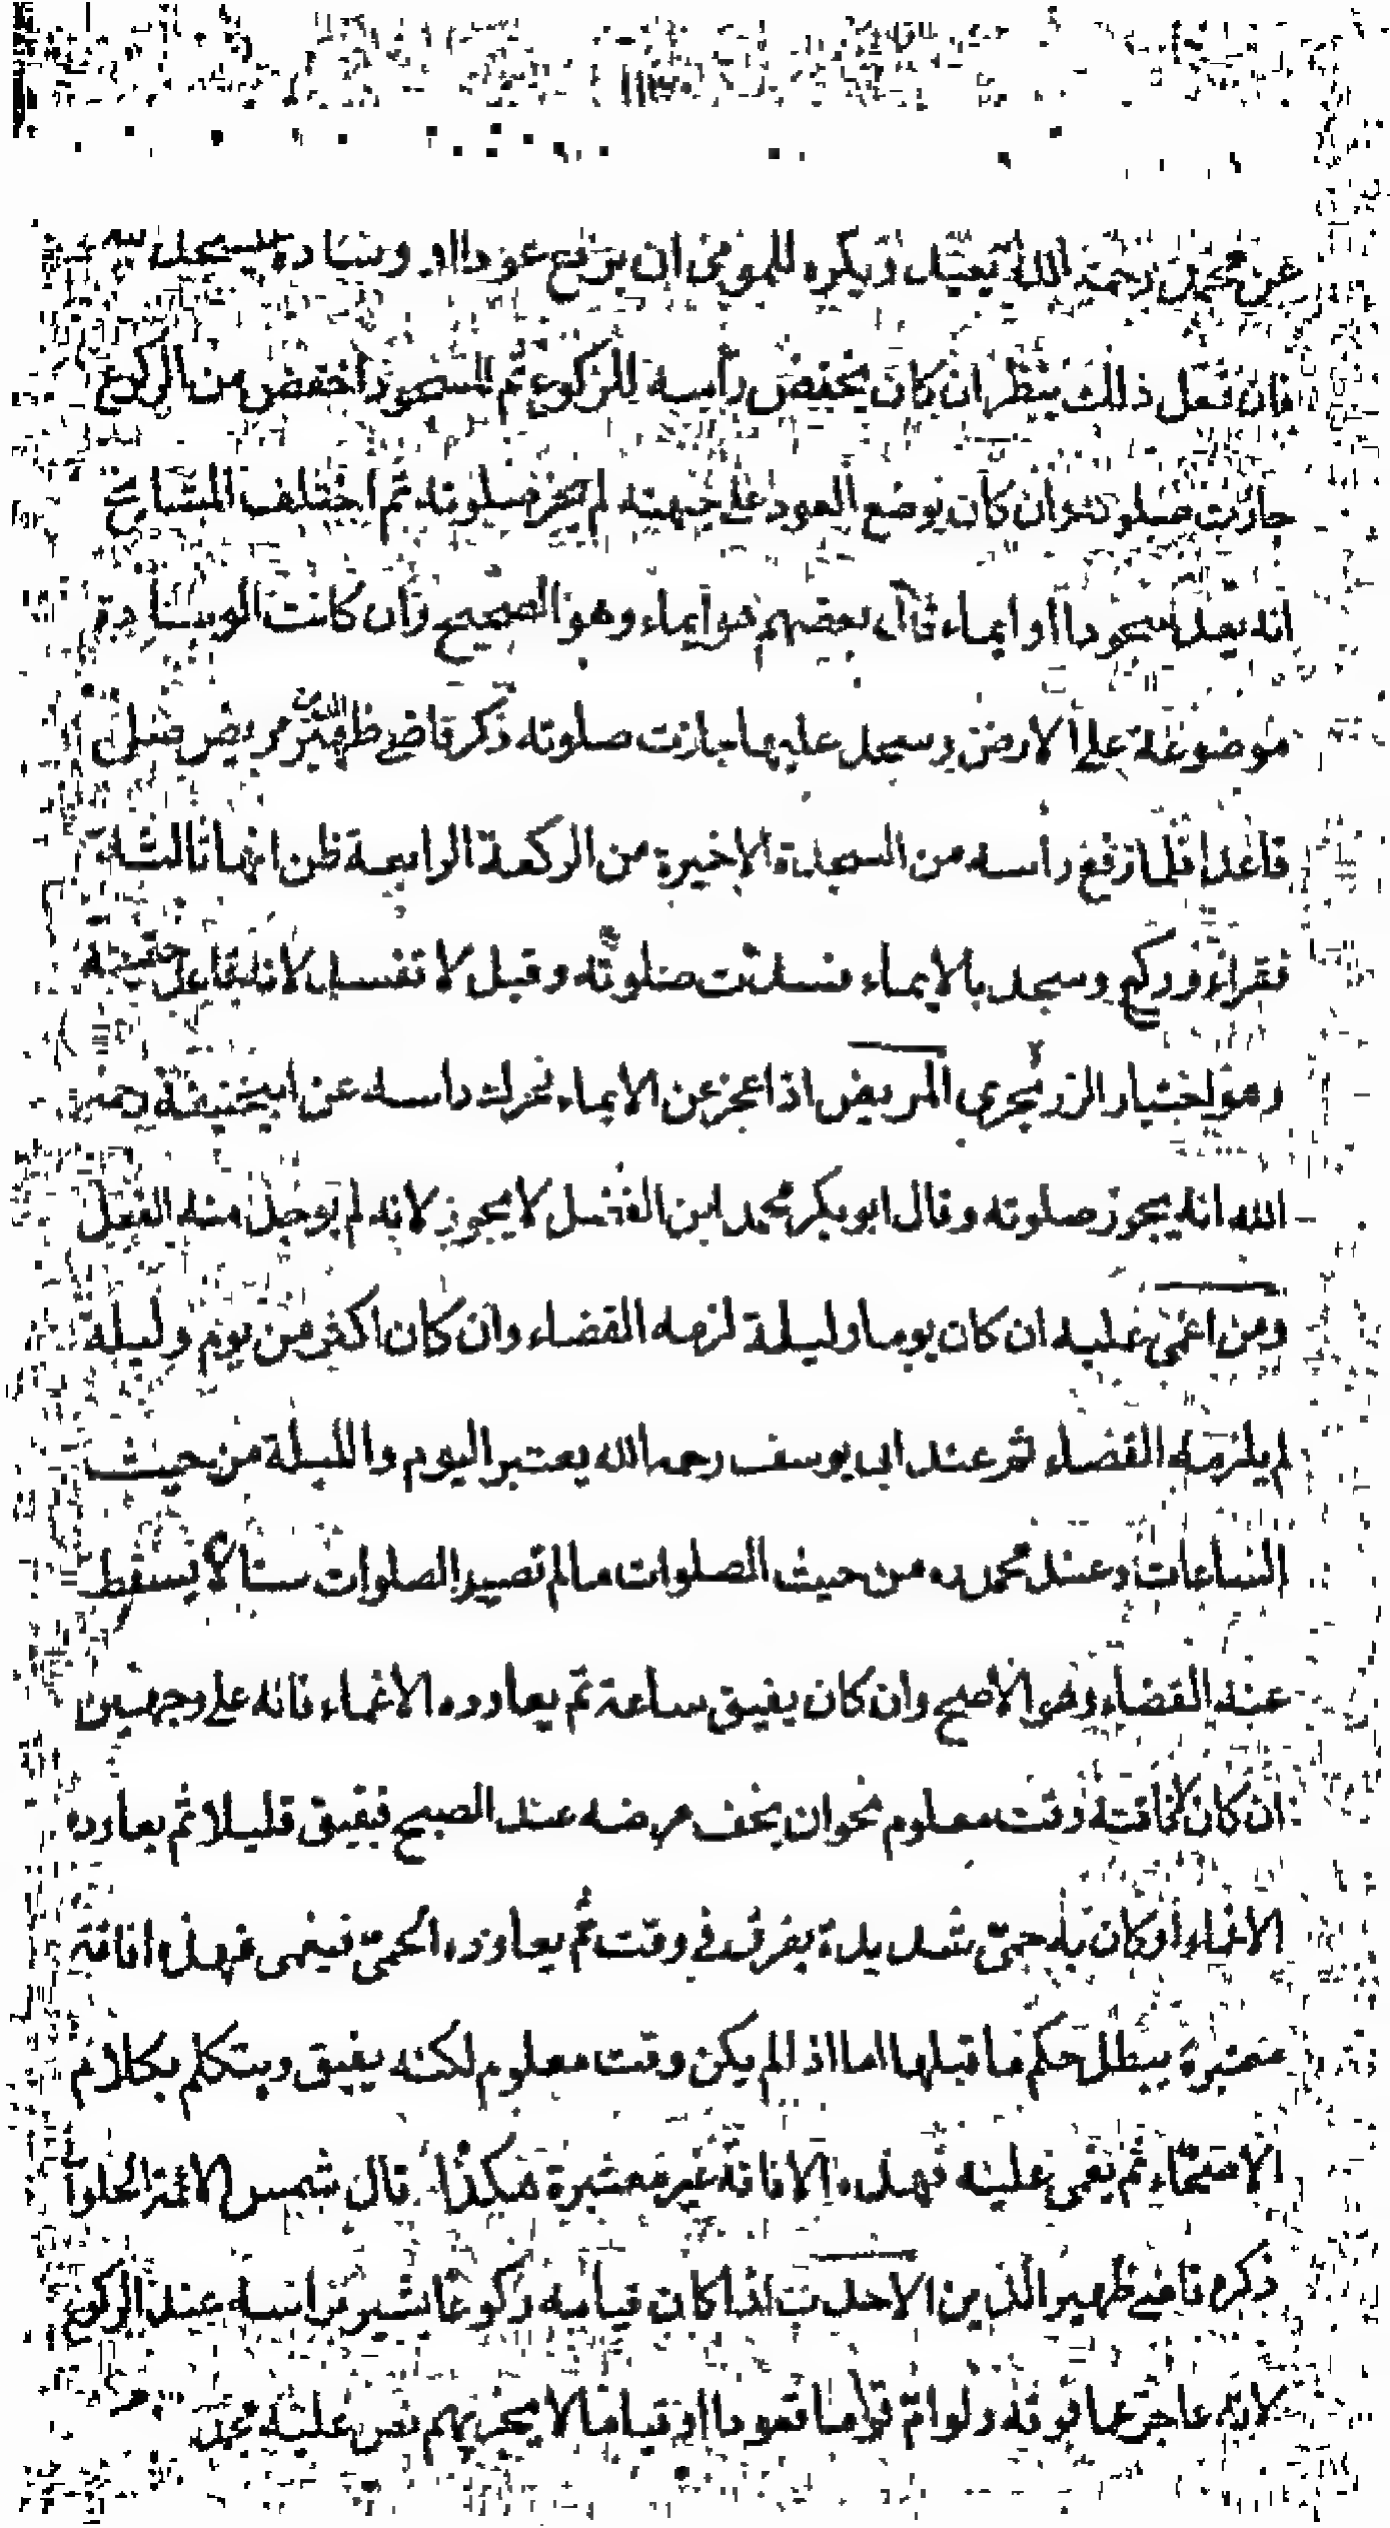 عن محمد رحمة الله يعتد ويكره للمومى ان يرفع عودا او وسادة ليسجد عليه
فان فعل ذلك ينظر ان كان يخفض رأسه للركوع ثم للسجود اخفض من الركوع
جازت صلوته وان كان يوضع العود على جبهته لم يجز صلوته ثم اختلف المشايخ
انه يعد سجودا او ايماء قال بعضهم هو ايماء وهو الصحيح وان كانت الوسادة
موضوعة على الارض وسجد عليها جازت صلوته ذكر قاضى ظهير الدين مريض صلى
قاعدا فلما رفع رأسه من السجدة الاخيرة من الركعة الرابعة ظن انها ثالثة
فقراء وركع وسجد بالايماء فسدت صلوته وقيل لا تفسد لانه قاعد حقيقة
وهو اختيار الزرنجرى المريض اذا عجز عن الايماء فحرك راسه عن ابيحنيفة رحمه
الله انه يجوز صلوته وقال ابو بكر محمد ابن الفضل لا يجوز لانه لم يوجد منه الفعل
ومن اغمى عليه ان كان يوما وليلة لزمه القضاء وان كان اكثر من يوم وليلة
لم يلزمه القضاء ثم عند ابى يوسف رحمه الله يعتبر اليوم والليلة من حيث
الساعات وعند محمد ره من حيث الصلوات ما لم تصير الصلوات ستا لا يسقط
عنه القضاء وهو الاصح وان كان يفيق ساعة ثم يعاوده الاغماء فانه على وجهين
ان كان لافاقته وقت معلوم نحو ان يخف مرضه عند الصبح فيفيق قليلا ثم يعاوده
الاغماء او كان به حمى شديدة يفرق فى وقت ثم يعاوده الحمى فيغمى فهذه افاقة
معتبرة يبطل حكم ما قبلها اما اذا لم يكن وقت معلوم لكنه يفيق ويتكلم بكلام
الاصحاء ثم يغمى عليه فهذه الافاقة غير معتبرة هكذا قال شمس الائمة الحلوا
ذكره قاضى ظهير الدين الاحدب اذا كان قيامه ركوعا يشير براسه عند الركوع
لانه عاجز عما فوقه ولو ام قوما قعودا او قياما لا يجزيهم نص عليه محمد